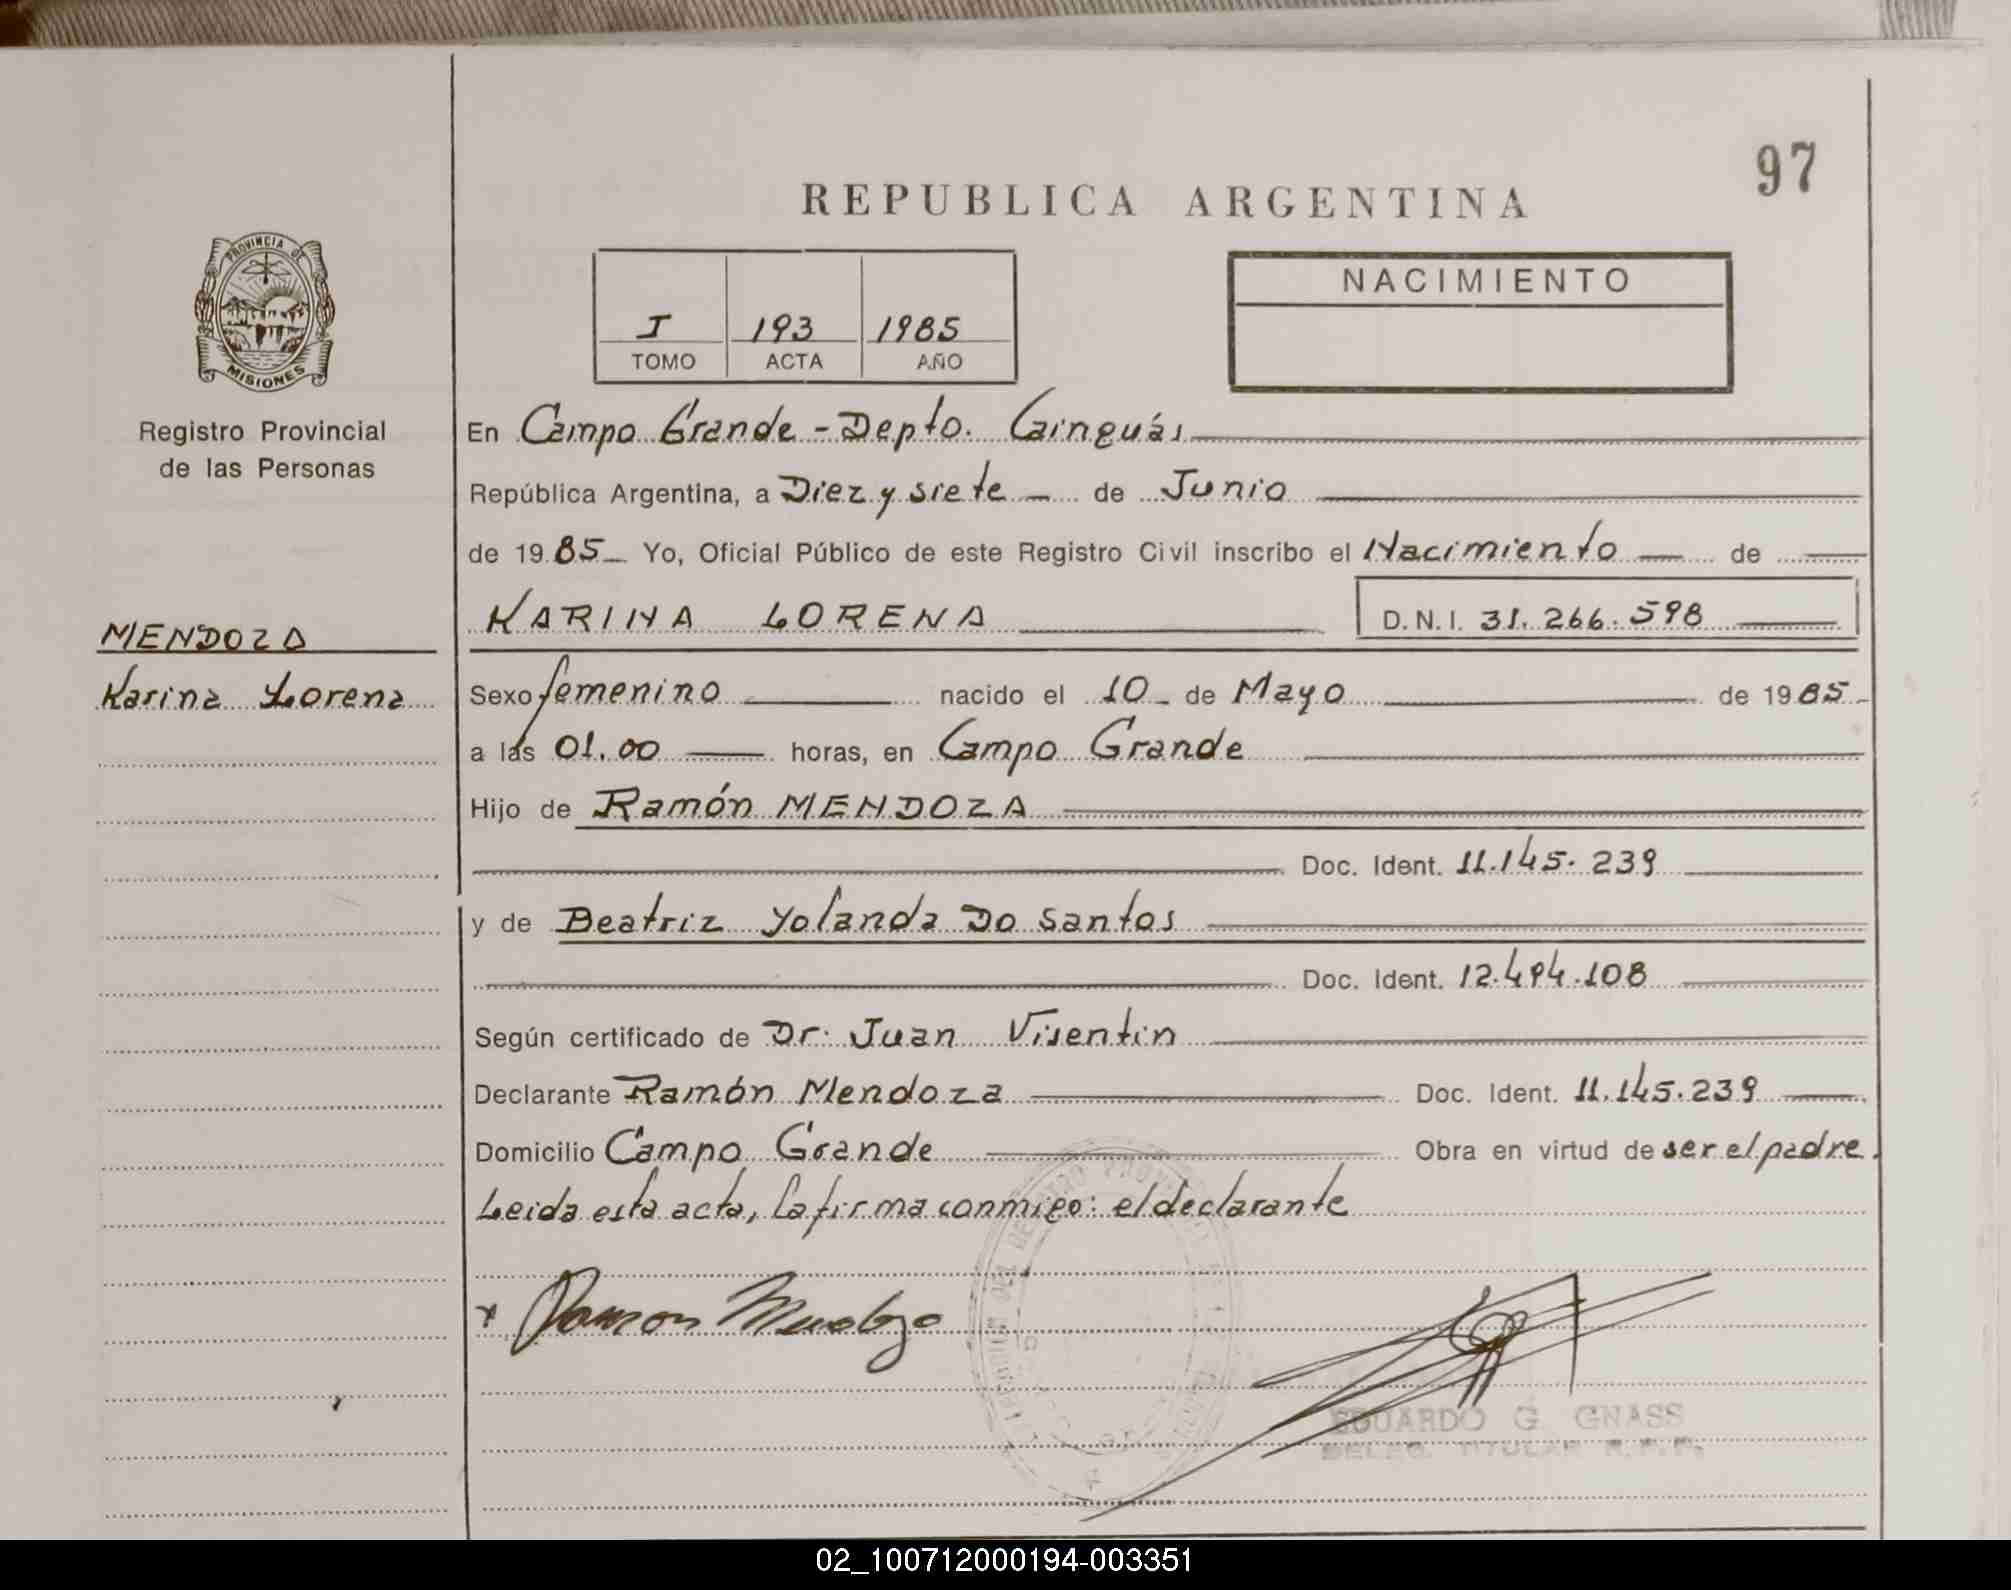 97
REPUBLICA ARGENTINA
PROVINCIA DE
MISIONES
Registro Provincial
de las Personas
I 193 1985
TOMO ACTA AÑO
NACIMIENTO
En Campo Grande - Depto. Cainguás
República Argentina, a Diez y siete de Junio
de 1985 Yo, Oficial Público de este Registro Civil inscribo el Nacimiento de
KARINA LORENA D.N.I. 31.266.598
MENDOZA
Karina Lorena
Sexo femenino nacido el 10 de Mayo de 1985
a las 01.00 horas, en Campo Grande
Hijo de Ramón MENDOZA
Doc. Ident. 11.145.239
y de Beatriz Yolanda Do Santos
Doc. Ident. 12.494.108
Según certificado de Dr. Juan Visentin
Declarante Ramón Mendoza Doc. Ident. 11.145.239
Domicilio Campo Grande Obra en virtud de ser el padre.
Leida esta acta, la firma conmigo: el declarante
Ramon Mendoza
EDUARDO G. GNASS
DELEG. TITULAR R.P.P.
02_100712000194-003351